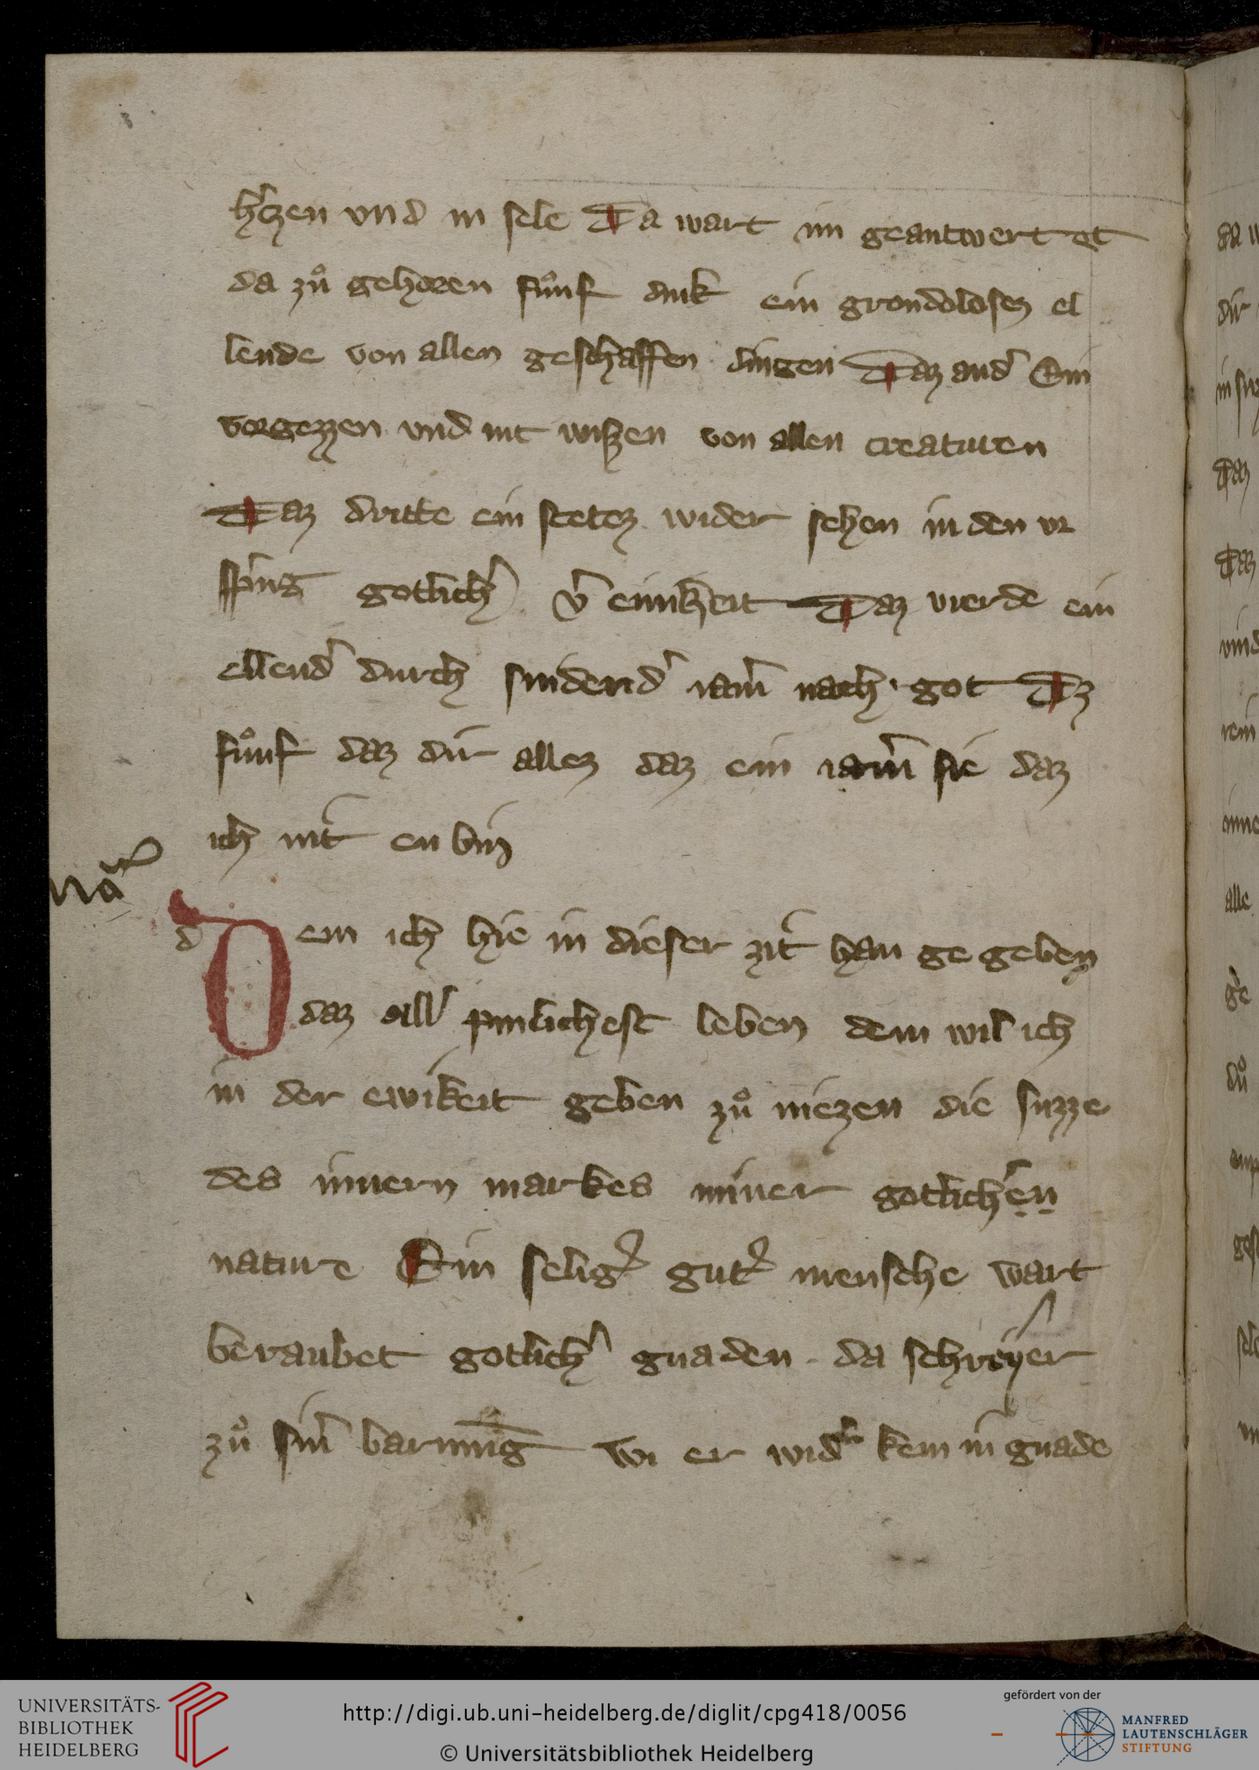 hʼczen vnd in sele Da wart im geantwert et
da zuͦ gehoren fuͦnf dink ein grondolosez el
lende von allen geschaffen dingen Daz andʼ Ein
vorgezzen vnd nit wiszen von allen creaturen
Daz dritte ein stetez wider sehen in den vr
spring gotlichʼ vʼ einikeit Daz vierde ein
ellendʼ durch sindendʼ iamʼ nach got Dz
fuͦnf daz dir allez daz ein iamʼ sie daz
ich nit en bin
nā
d
Dem ich hie in dieser zit han ge geben
daz allʼ pinlichest leben dem wil ich
in der ewikeit geben zuͦ niezen die suzze
des innern markes miner gotlichʼen
nature Ein seligʼ gutʼ mensche wart
beraubet gotlichʼ gnaden da schrey er
zuͦ sinʼ barmūg wi er widʼ kem in gnade
UNIVERSITÄTS-
BIBLIOTHEK
HEIDELBERG
http://digi.ub.uni-heidelberg.de/diglit/cpg418/0056
© Universitätsbibliothek Heidelberg
gefördert von der
MANFRED
LAUTENSCHLÄGER
STIFTUNG